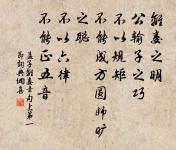 離婁之明
公輸子之巧
不以規矩
不能成方圓師曠
之聰
不以六律
不能正五音
孟子離婁章句上第一
詞典網